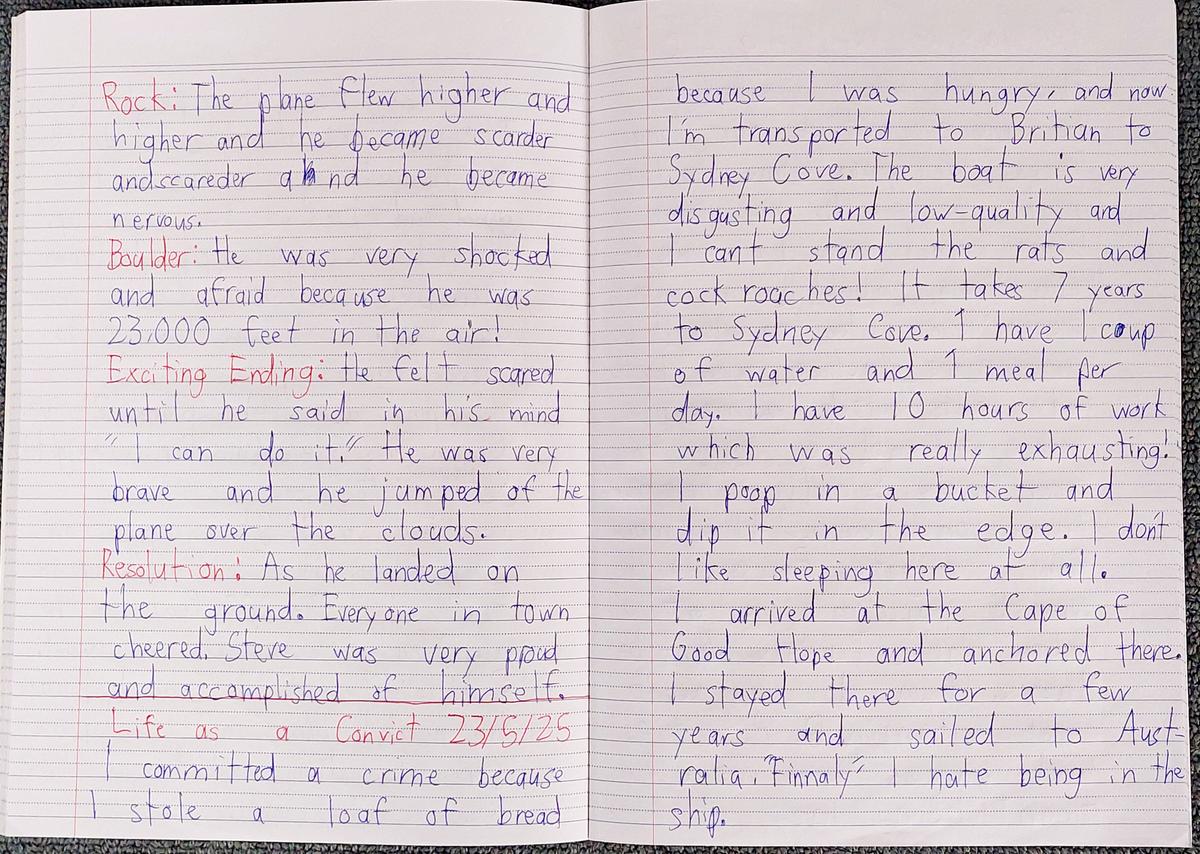 Rock: The plane flew higher and
higher and he became scarder
and scareder and he became
nervous.
Boulder: He was very shocked
and afraid because he was
23,000 feet in the air!
Exciting Ending: He felt scared
until he said in his mind
"I can do it." He was very
brave and he jumped of the
plane over the clouds.
Resolution: As he landed on
the ground. Everyone in town
cheered. Steve was very proud
and accomplished of himself.
Life as a Convict 23/5/25
I committed a crime because
I stole a loaf of bread
because I was hungry, and now
I'm transported to Britian to
Sydney Cove. The boat is very
disgusting and low-quality and
I can't stand the rats and
cock roaches! It takes 7 years
to Sydney Cove. I have 1 cup
of water and 1 meal per
day. I have 10 hours of work
which was really exhausting!
I poop in a bucket and
dip it in the edge. I don't
like sleeping here at all.
I arrived at the Cape of
Good Hope and anchored there.
I stayed there for a few
years and sailed to Aust-
ralia. "Finnaly" I hate being in the
ship.